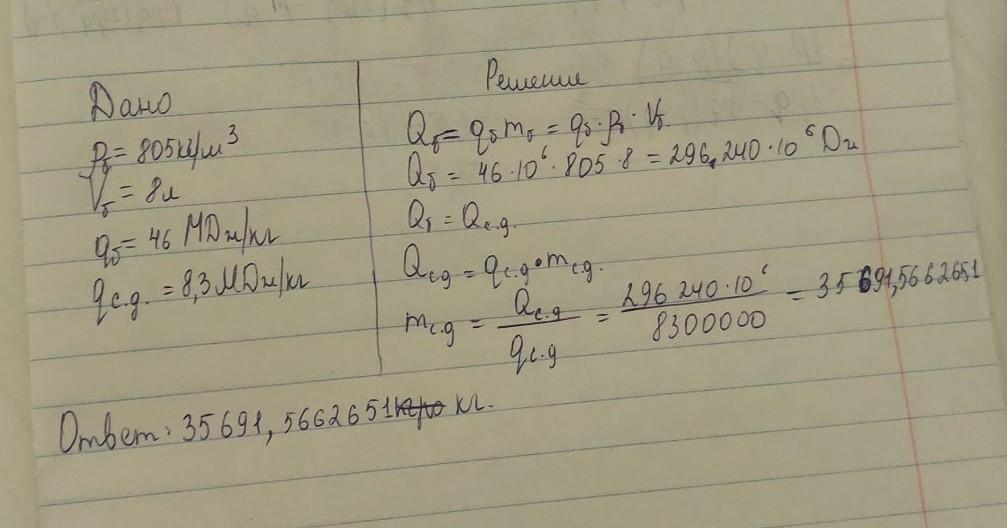 Дано
ρб = 805кг/м³
Vб = 8л
qб = 46 МДж/кг
qс.д. = 8,3 МДж/кг
Решение
Qб = qб mб = qб · ρб · Vб
Qб = 46 · 10⁶ · 805 · 8 = 296,240 · 10⁶ Дж
Qб = Qс.д.
Qс.д = qс.д · mс.д.
mс.д = Qс.д / qс.д = 296 240 · 10⁶ / 8300000 = 35 691,5662651
Ответ: 35 691, 5662651 кг.